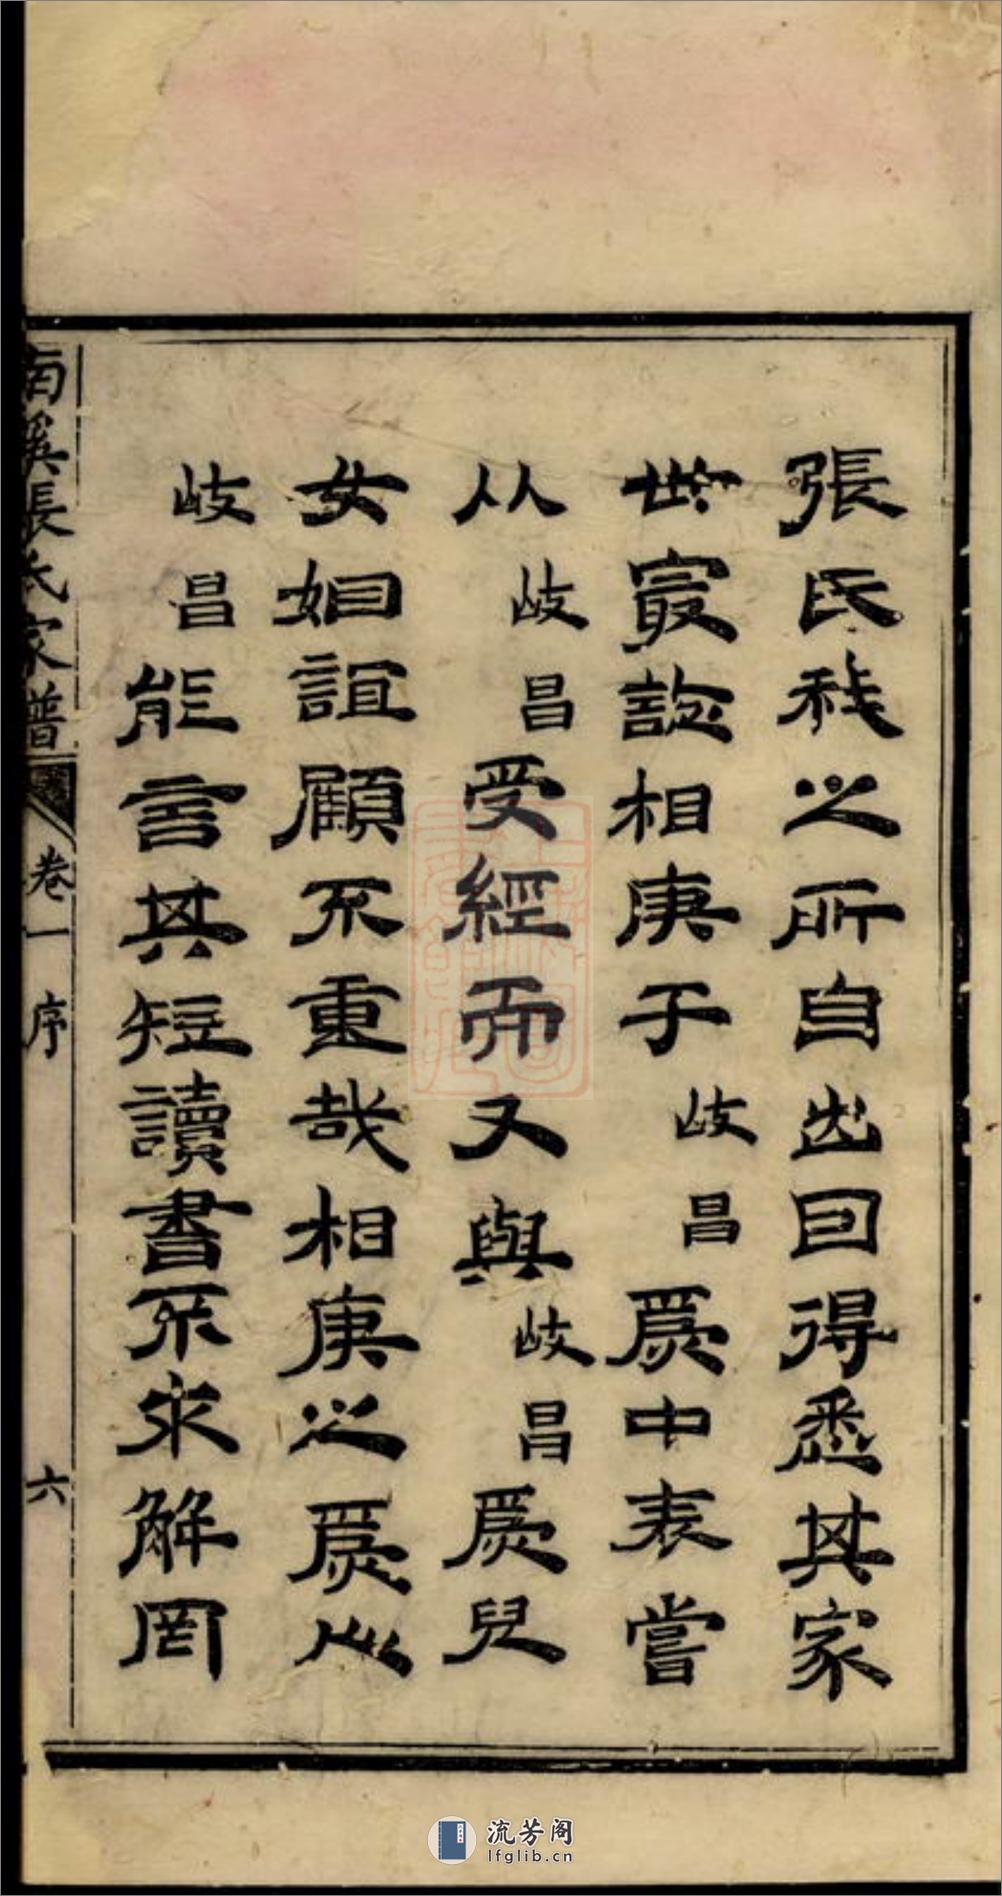 張氏我之所自出因得悉其家
世最諗相庚于岐昌爲中表嘗
从岐昌受經而又與岐昌爲兒
女姻誼顧不重哉相庚之爲人
岐昌能言其短讀書不求解罔
南溪張氏家譜 卷一序 六
流芳阁
lfglib.cn